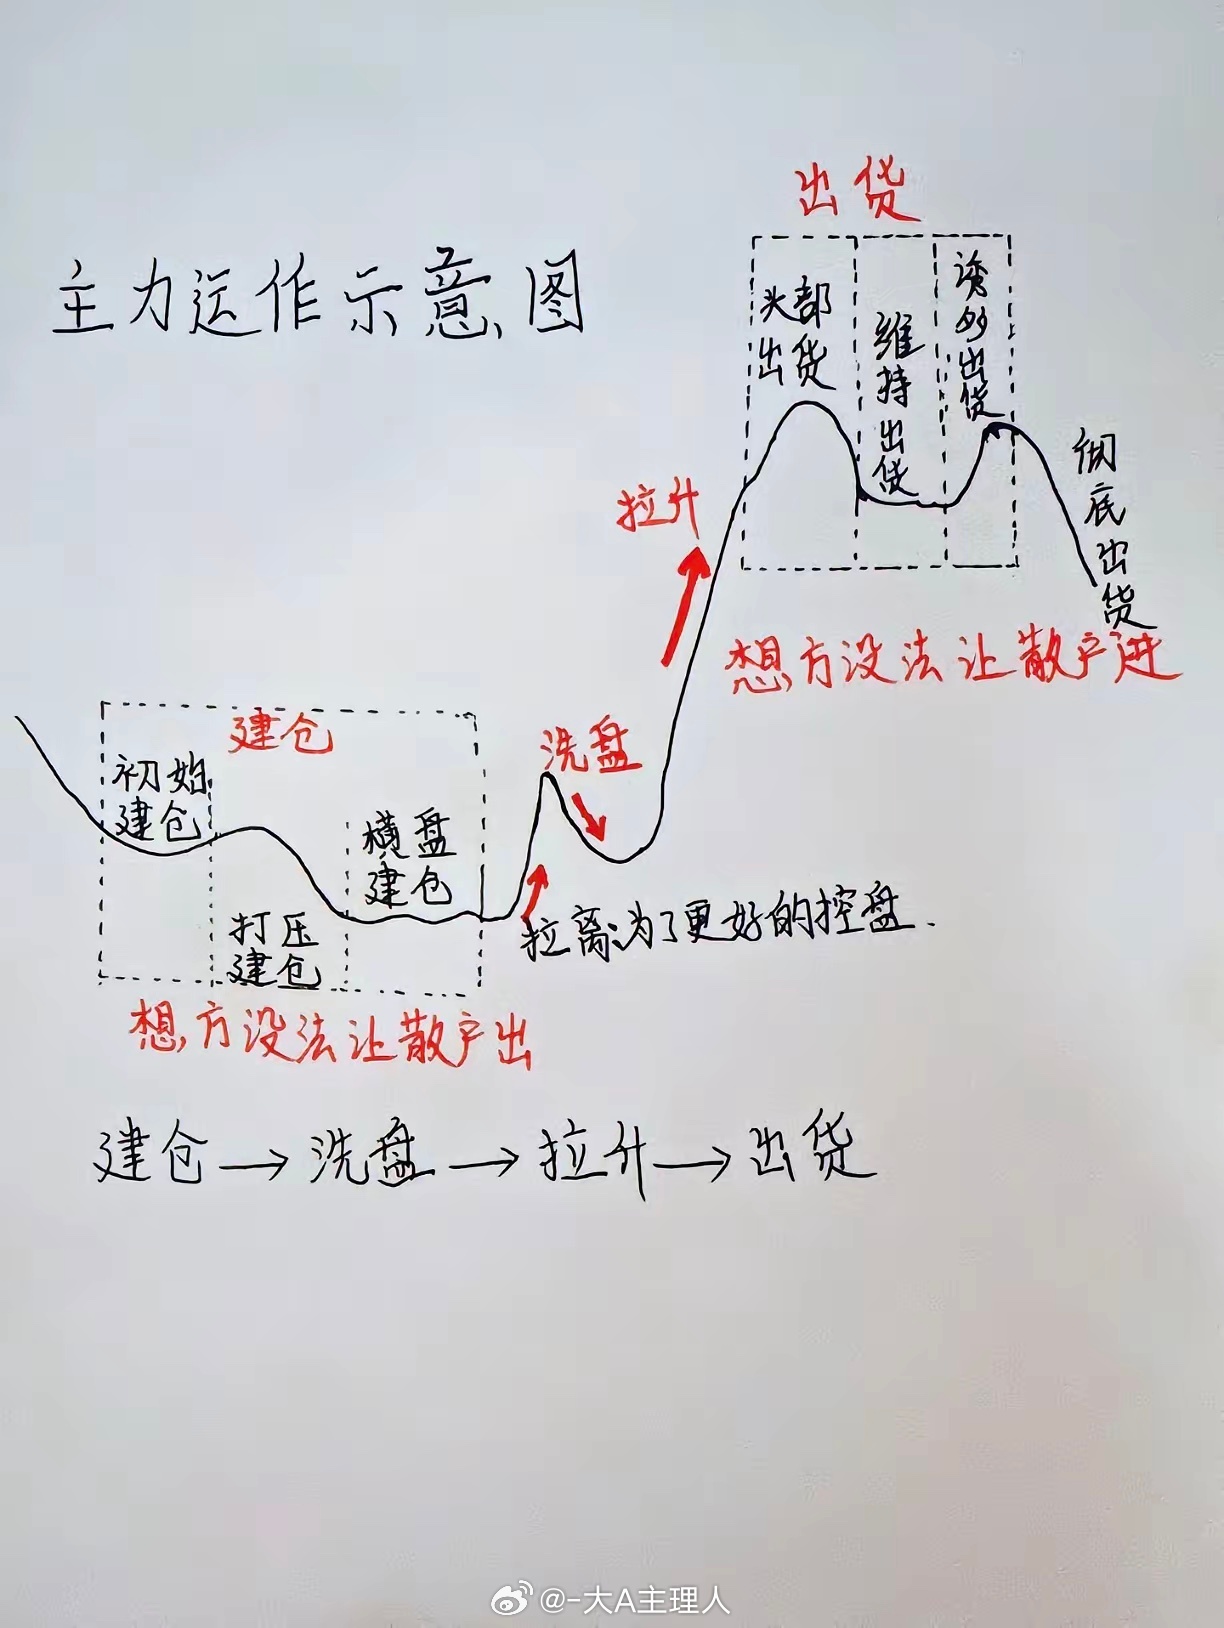 主力运作示意图
出货
头部
出货
维持出货
诱多出货
彻底出货
拉升
想方设法让散户进
建仓
初始
建仓
打压
建仓
横盘
建仓
洗盘
拉离:为了更好的控盘.
想方设法让散户出
建仓→洗盘→拉升→出货
@-大A主理人